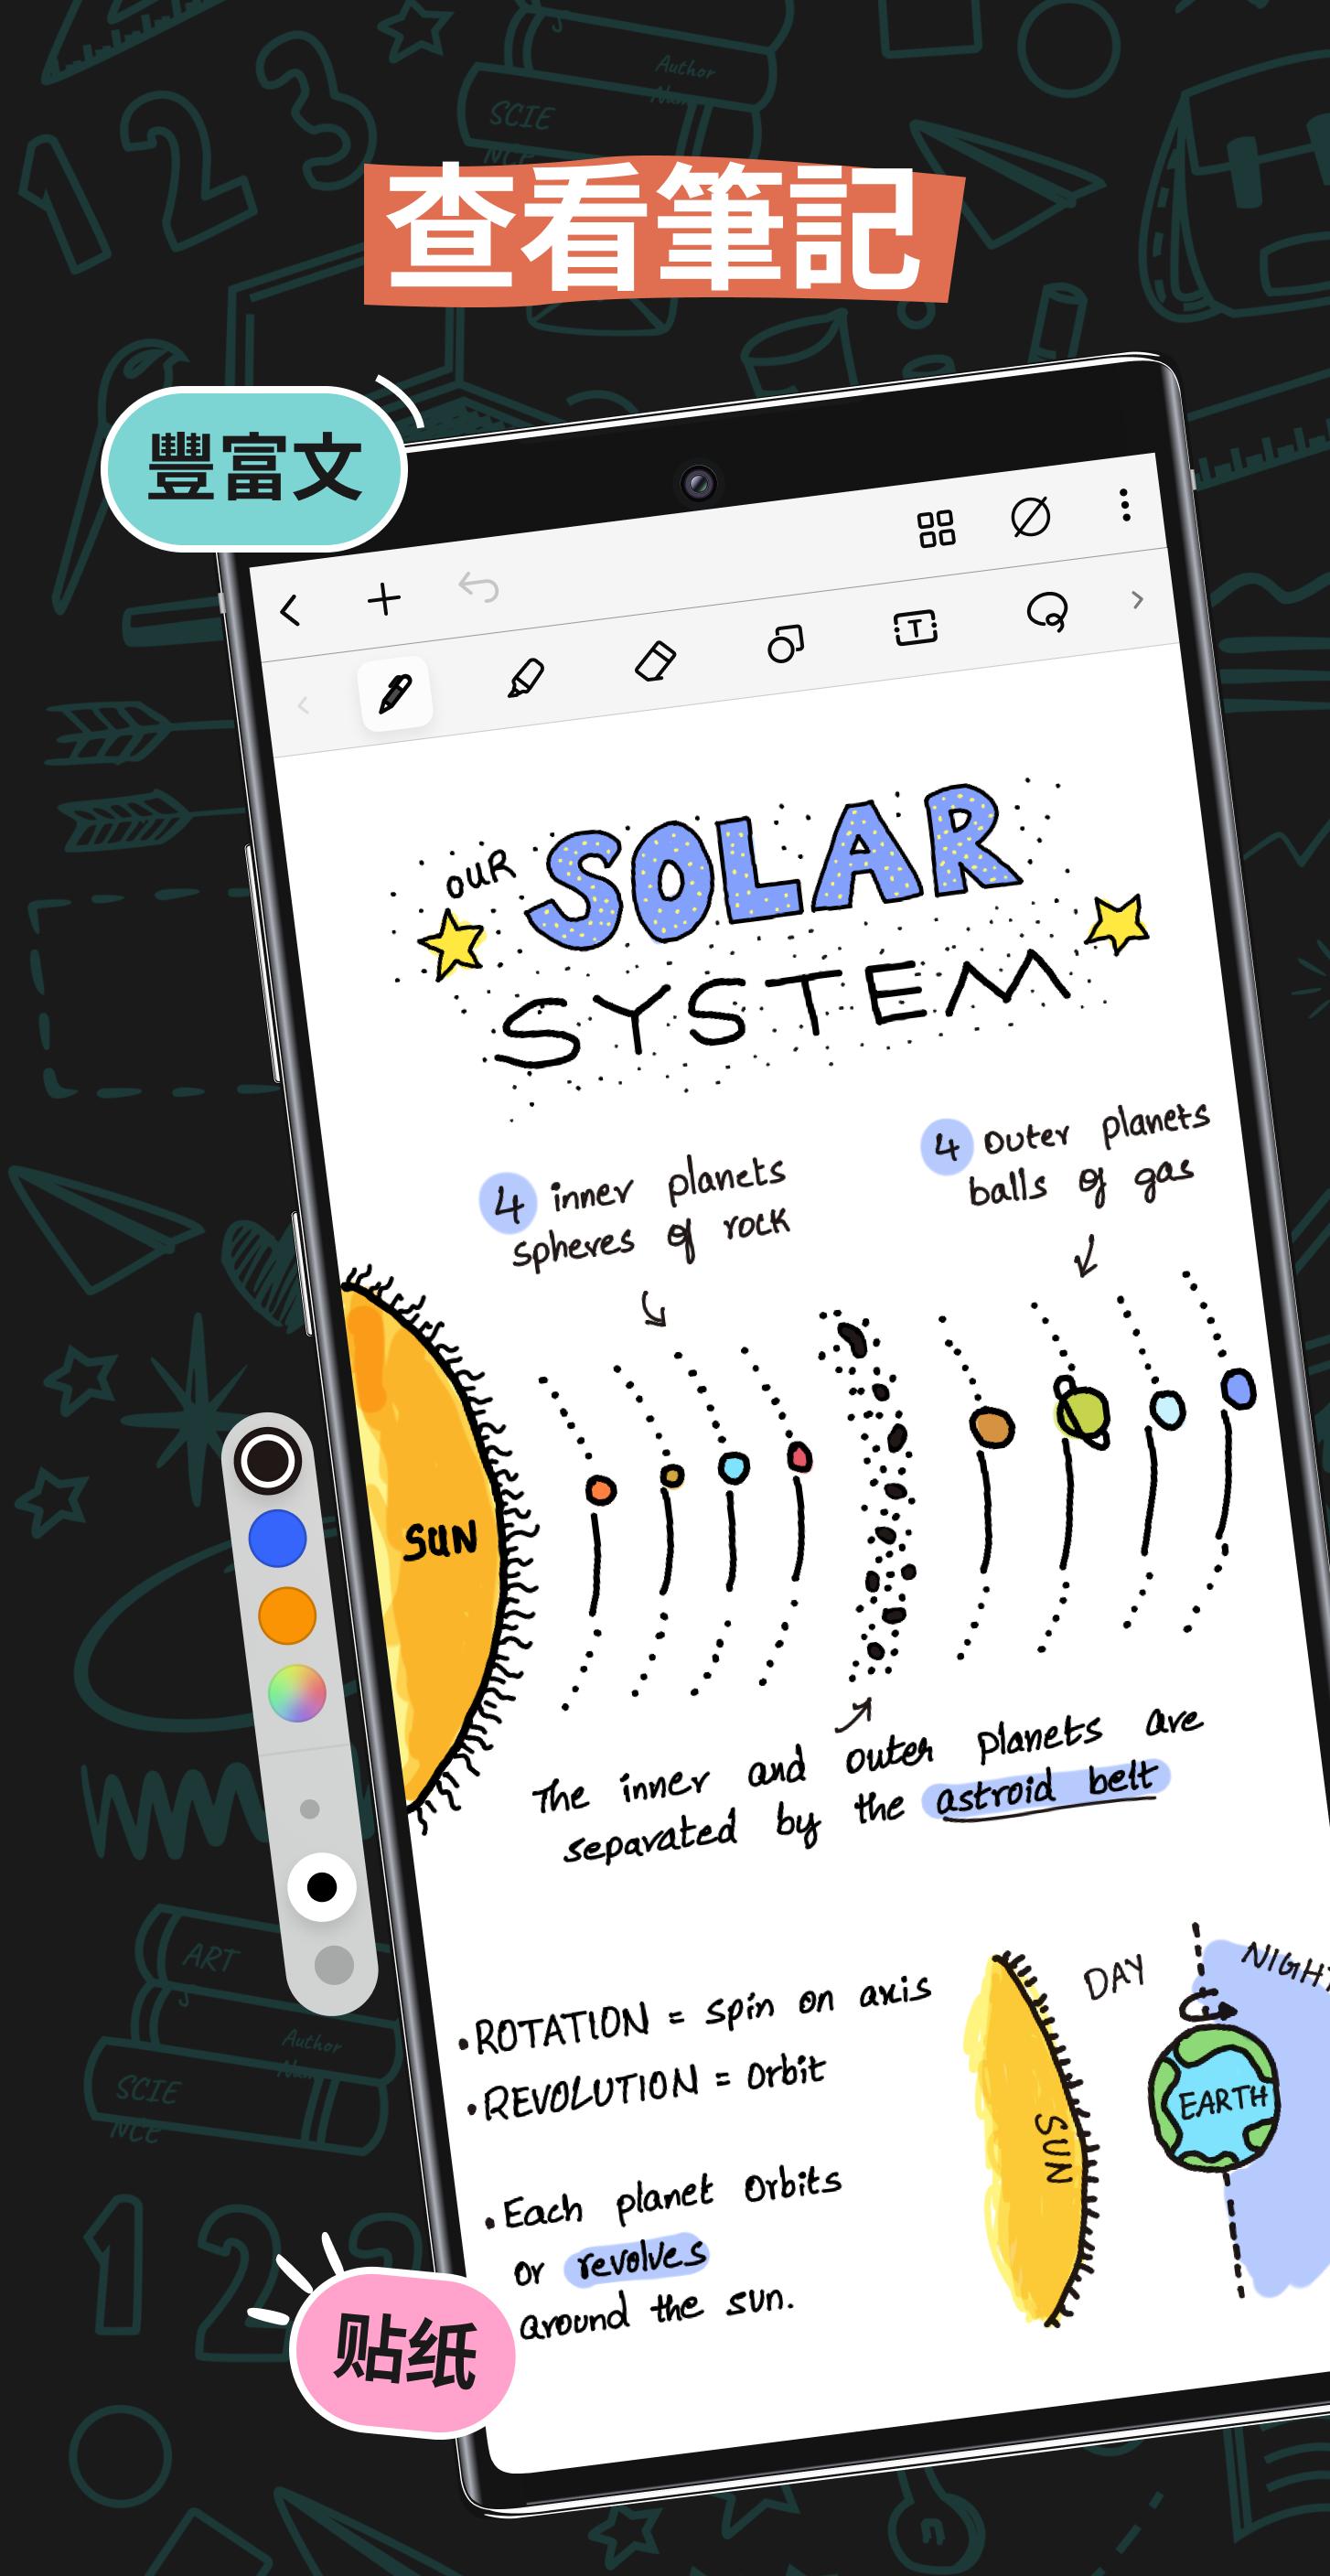 1 2 3
SCIE
NCE
Author
查看筆記
豐富文
T
OUR SOLAR
SYSTEM
4 inner planets
spheres of rock
4 outer planets
balls of gas
SUN
The inner and outer planets are
separated by the astroid belt
• ROTATION = spin on axis
• REVOLUTION = orbit
• Each planet orbits
or revolves
around the sun.
SUN
DAY
NIGHT
EARTH
ART
Author
SCIE
NCE
1 2 3
贴纸